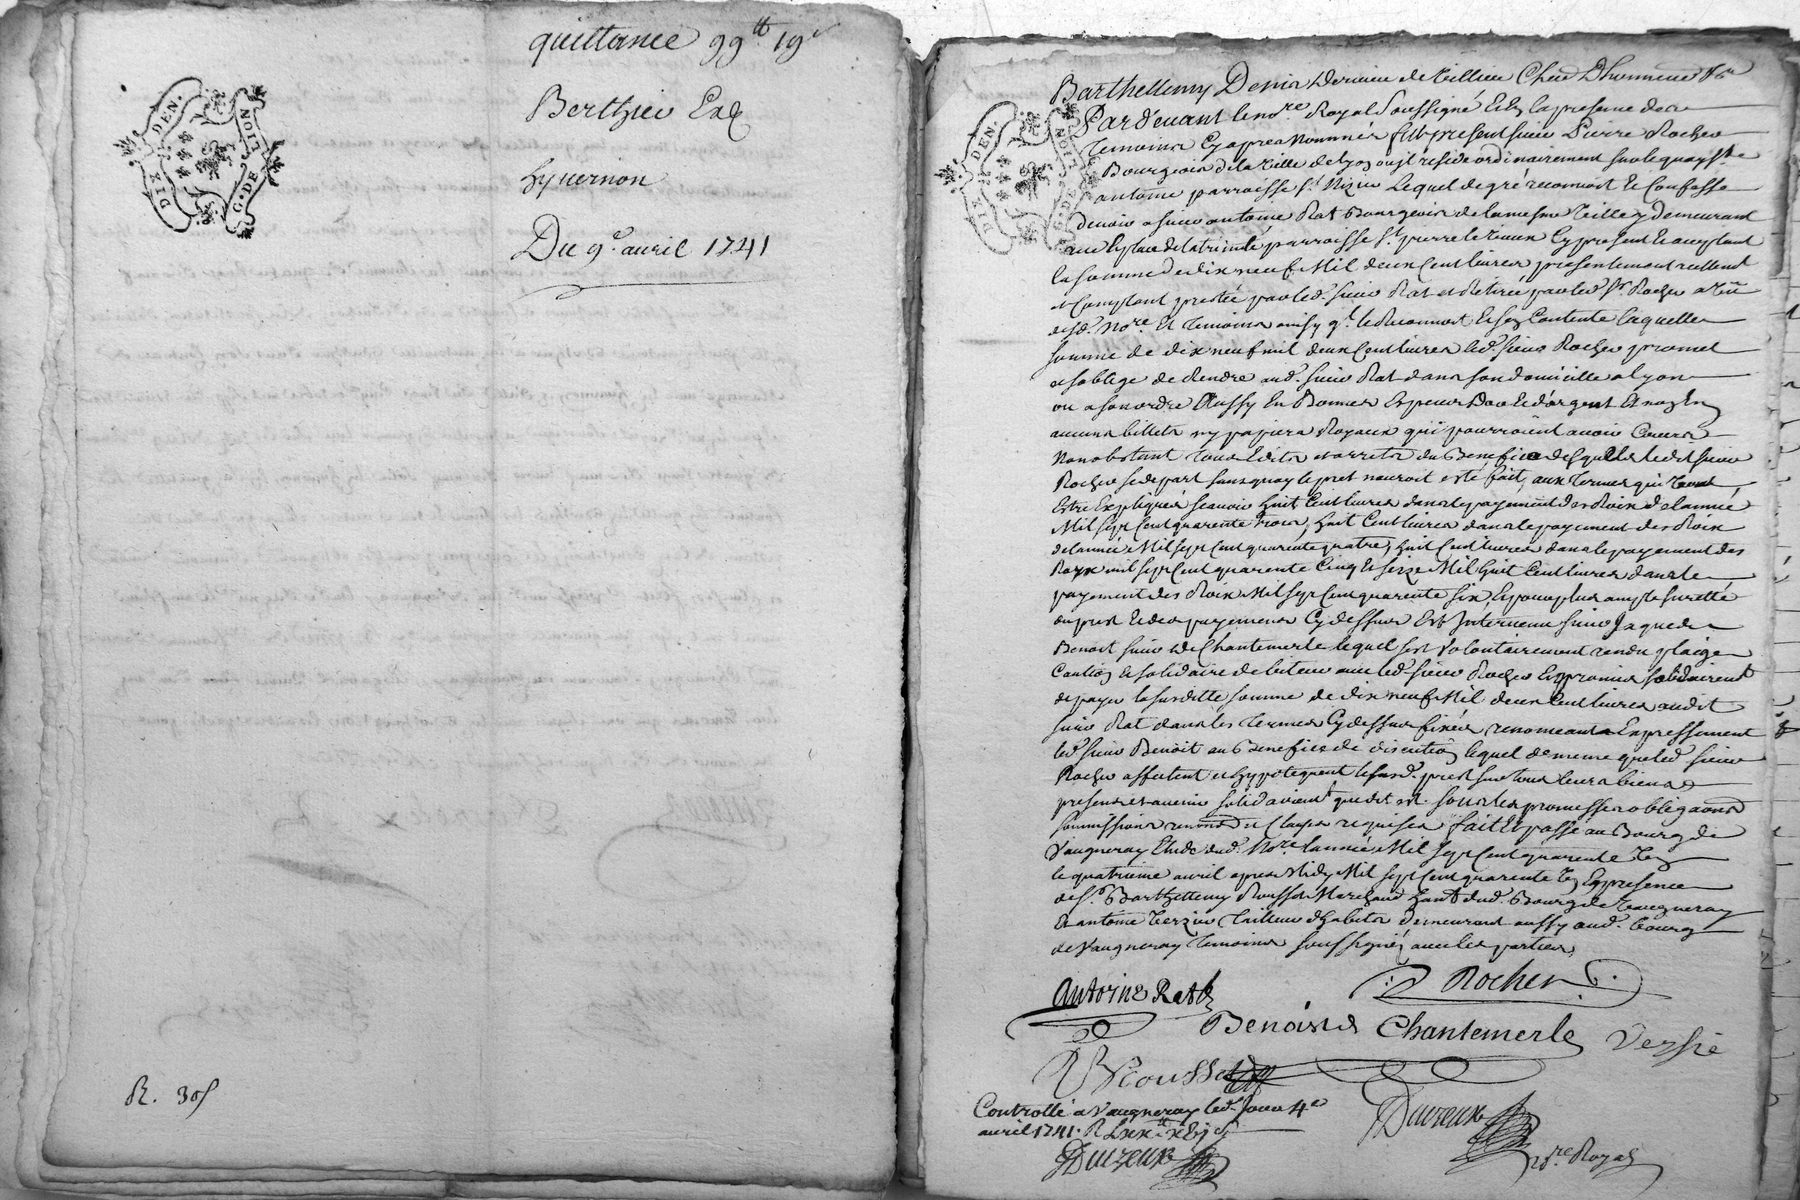 quittance 99 lt 19 s
Berthier Et
hyvernon
Du 9e avril 1741
DIX DEN.
G. DE LION
R. 30s
DIX DEN.
G. DE LION
Barthellemy Denis Cher D'honneur
Pardevant le nore Royal soussigné Et En la presence des
temoins Cy apres nommés fut present sieur Pierre Rocher
Bourgeois de la ville de lyon ou jl reside ordinairement sur le quay St
antoine parroisse St Nizier Lequel de gré reconnoit Et Confesse
devoir a sieur antoine Rat Bourgeois de la mesme Ville y demeurant
place de la trinité parroisse St pierre le vieux Cy present Et acceptant
la somme de dix neuf Mil deux Cent livres presentement reellemt
et Comptant prestée par led. sieur Rat et Retirée par led. sr Rocher a veue
desd. Nore Et temoins ainsy ql. le Reconnoit Et s'en Contente laquelle
somme de dix neuf mil deux Cent livres led. sieur Rocher promet
et soblige de Rendre aud. sieur Rat dans son domicille a lyon
ou a son ordre Aussy En Bonnes Especes D'or Et d'argent Et non En
aucuns billets ny papiers Royaux qui pourroient avoir Cours
Nonobstant tous Edits et arrets du Benefice desquels ledit sieur
Rocher se depart sans quoy le pret n'auroit esté fait, aux termes qui vont
Estre Expliqués scavoir huit Cent livres dans le payement des Rois de lannée
Mil sept Cent quarente trois, huit Cent livres dans le payement des Rois
de lannée Mil sept Cent quarente quatre, huit Cent livres dans le payement des
Roys mil sept Cent quarente Cinq Et seize Mil huit Cent livres dans le
payement des Rois Mil sept Cent quarente six Et pour plus ample suretté
du pret Et des payemens Cy dessus Est Intervenu sieur Jaques
Benoit sieur de Chantemerle lequel s'est Volontairement rendu plaige
Caution Et solidaire debiteur avec led. sieur Rocher Et promis solidairemt
de payer la susditte somme de dix neuf Mil deux Cent livres audit
sieur Rat dans les termes Cy dessus fixés, renonceant Expressement
led. sieur Benoit au Benefice de discution lequel de meme que led. sieur
Rocher affectent et hypotequent le susd. pret sur tous leurs biens
presens et avenir solidairemt que dit est. sous les promesses obligaons
soumissions renons et Clauses requises fait Et passé au Bourg de
Vaugneray Etude dud. Nore lannée Mil sept Cent quarente Un
le quatrieme avril apres Midy Mil sept Cent quarente Un En presence
de sr. Barthellemy Rousset Marchand hant dud. Bourg de Vaugneray
Et antoine Verzier Tailleur d'habits demeurant aussy aud. bourg
de Vaugneray temoins soussignés avec les parties
Antoine Rat
Rocher
Benoist de Chantemerle Versie
B Rousset
Controllé a Vaugneray led. Jour 4e
avril 1741. R
Duvreux
Duvreux
nre Royal